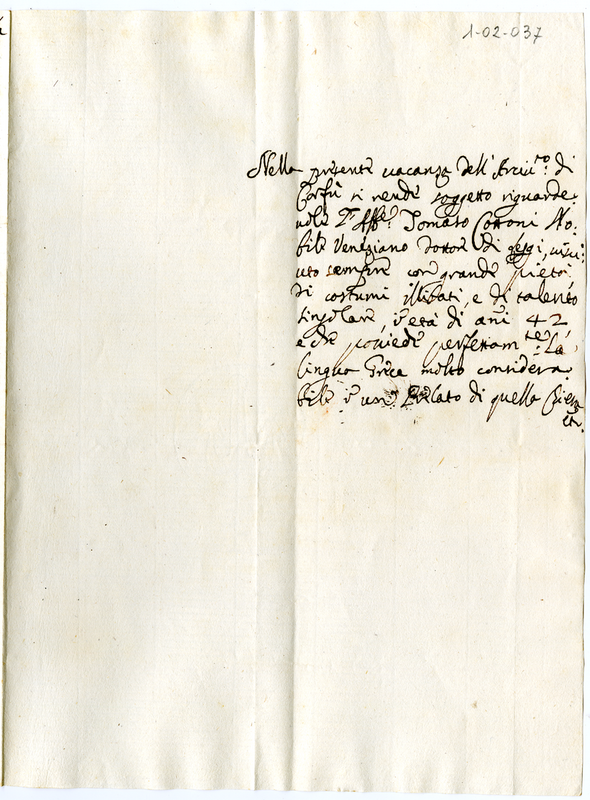 1-02-037
Nella presente vacanza dell'Arciu.to di
Corfù si rende soggetto riguarde,
uole Tomaso Cottoni No,
bile Veneziano Dottor di leggi, uissu,
uto sempre con grande pietà,
di costumi illibati, e di talento
singolare, età di anni 42,
e che possiede perfettam.te La
lingua Greca molto considera,
bile un Prelato di quella Chiesa
etc.